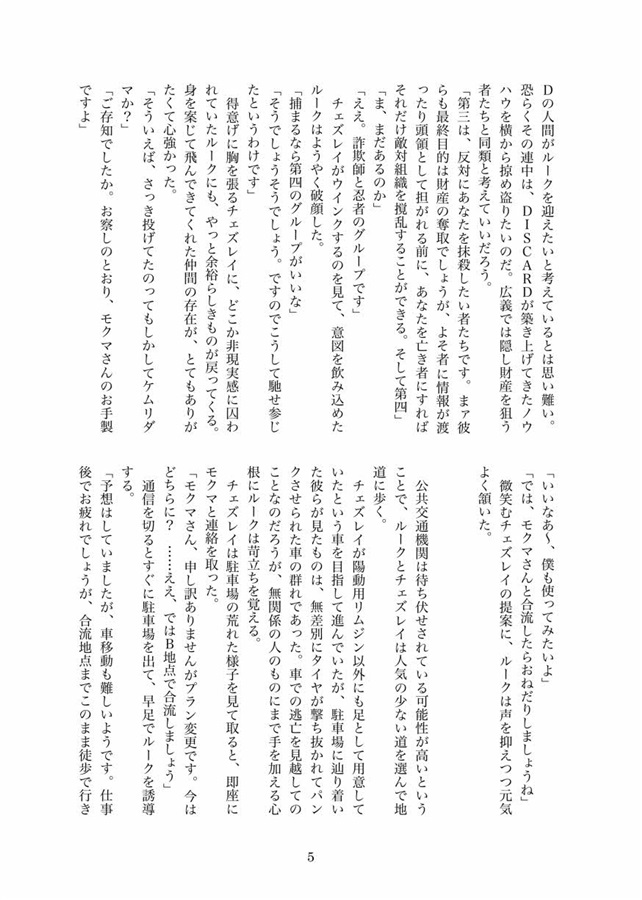 Dの人間がルークを迎えたいと考えているとは思い難い。
恐らくその連中は、DISCARDが築き上げてきたノウ
ハウを横から掠め盗りたいのだ。広義では隠し財産を狙う
者たちと同類と考えていいだろう。
「第三は、反対にあなたを抹殺したい者たちです。まァ彼
らも最終目的は財産の奪取でしょうが、よそ者に情報が渡
ったり頭領として担がれる前に、あなたを亡き者にすれば
それだけ敵対組織を撹乱することができる。そして第四」
「ま、まだあるのか」
「ええ。詐欺師と忍者のグループです」
チェズレイがウインクするのを見て、意図を飲み込めた
ルークはようやく破顔した。
「捕まるなら第四のグループがいいな」
「そうでしょうそうでしょう。ですのでこうして馳せ参じ
たというわけです」
得意げに胸を張るチェズレイに、どこか非現実感に囚わ
れていたルークにも、やっと余裕らしきものが戻ってくる。
身を案じて飛んできてくれた仲間の存在が、とてもありが
たくて心強かった。
「そういえば、さっき投げてたのってもしかしてケムリダ
マか?」
「ご存知でしたか。お察しのとおり、モクマさんのお手製
ですよ」
「いいなあ〜、僕も使ってみたいよ」
「では、モクマさんと合流したらおねだりしましょうね」
微笑むチェズレイの提案に、ルークは声を抑えつつ元気
よく頷いた。
公共交通機関は待ち伏せされている可能性が高いという
ことで、ルークとチェズレイは人気の少ない道を選んで地
道に歩く。
チェズレイが陽動用リムジン以外にも足として用意して
いたという車を目指して進んでいたが、駐車場に辿り着い
た彼らが見たものは、無差別にタイヤが撃ち抜かれてパン
クさせられた車の群れであった。車での逃亡を見越しての
ことなのだろうが、無関係の人のものにまで手を加える心
根にルークは苛立ちを覚える。
チェズレイは駐車場の荒れた様子を見て取ると、即座に
モクマと連絡を取った。
「モクマさん、申し訳ありませんがプラン変更です。今は
どちらに? ……ええ、ではB地点で合流しましょう」
通信を切るとすぐに駐車場を出て、早足でルークを誘導
する。
「予想はしていましたが、車移動も難しいようです。仕事
後でお疲れでしょうが、合流地点までこのまま徒歩で行き
5